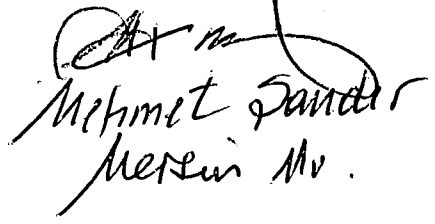 Mehmet Sandır
Mersin Mv.